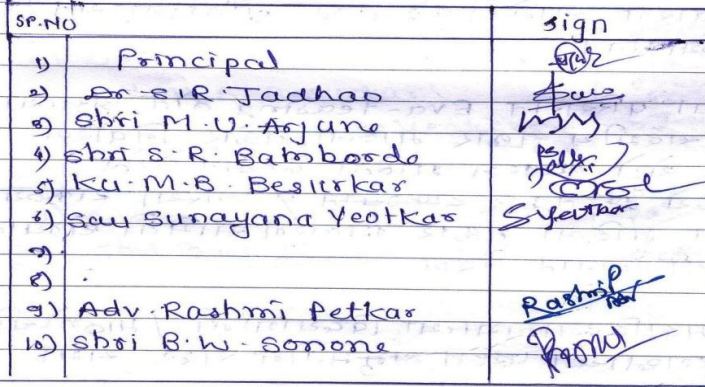 SP.NO sign
1) Principal
२) Dr S.R Jadhao
३) Shri M.U. Arjune
४) Shri S.R. Bamborde
५) Ku. M.B. Besurkar
६) Sau Sunayana Yeotkar Syeotkar
७)
८)
९) Adv. Rashmi Petkar Rashmi P
१०) Shri B.W. Sonone